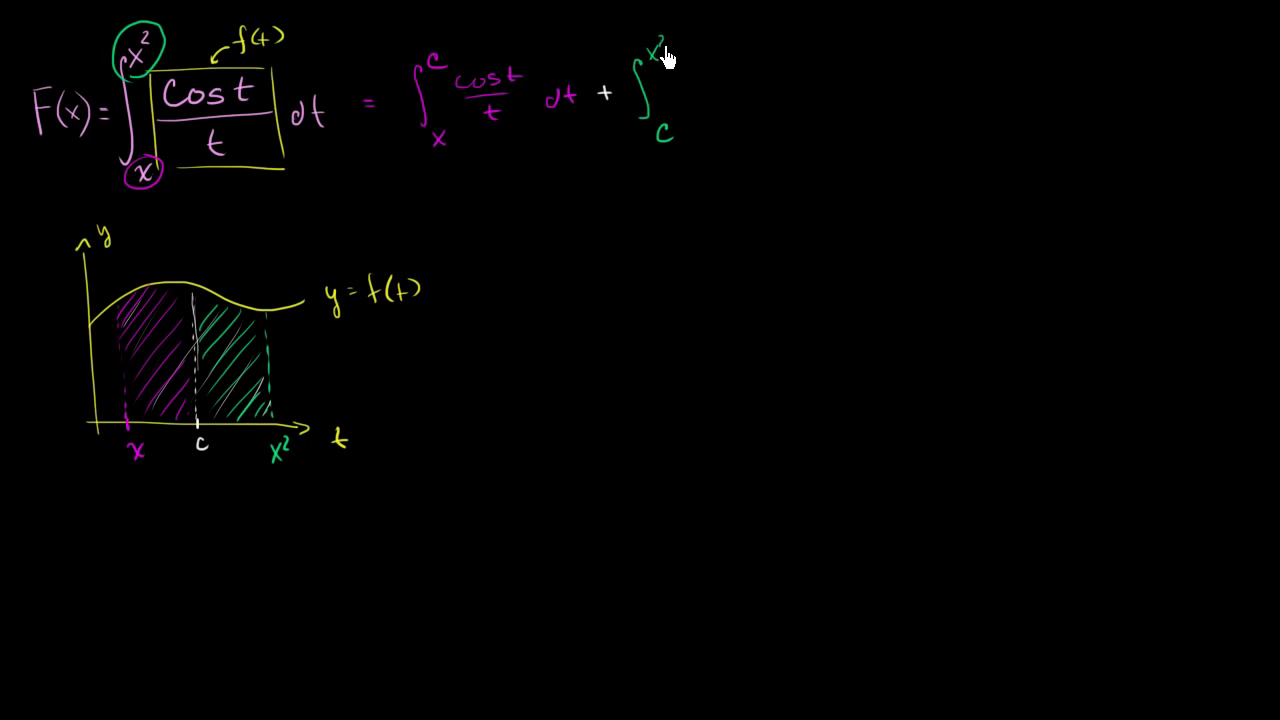 f(t)
F(x) = ∫ₓ^x² cos t / t dt = ∫ₓ^c cos t / t dt + ∫_c^x²
y
y = f(t)
x c x² t